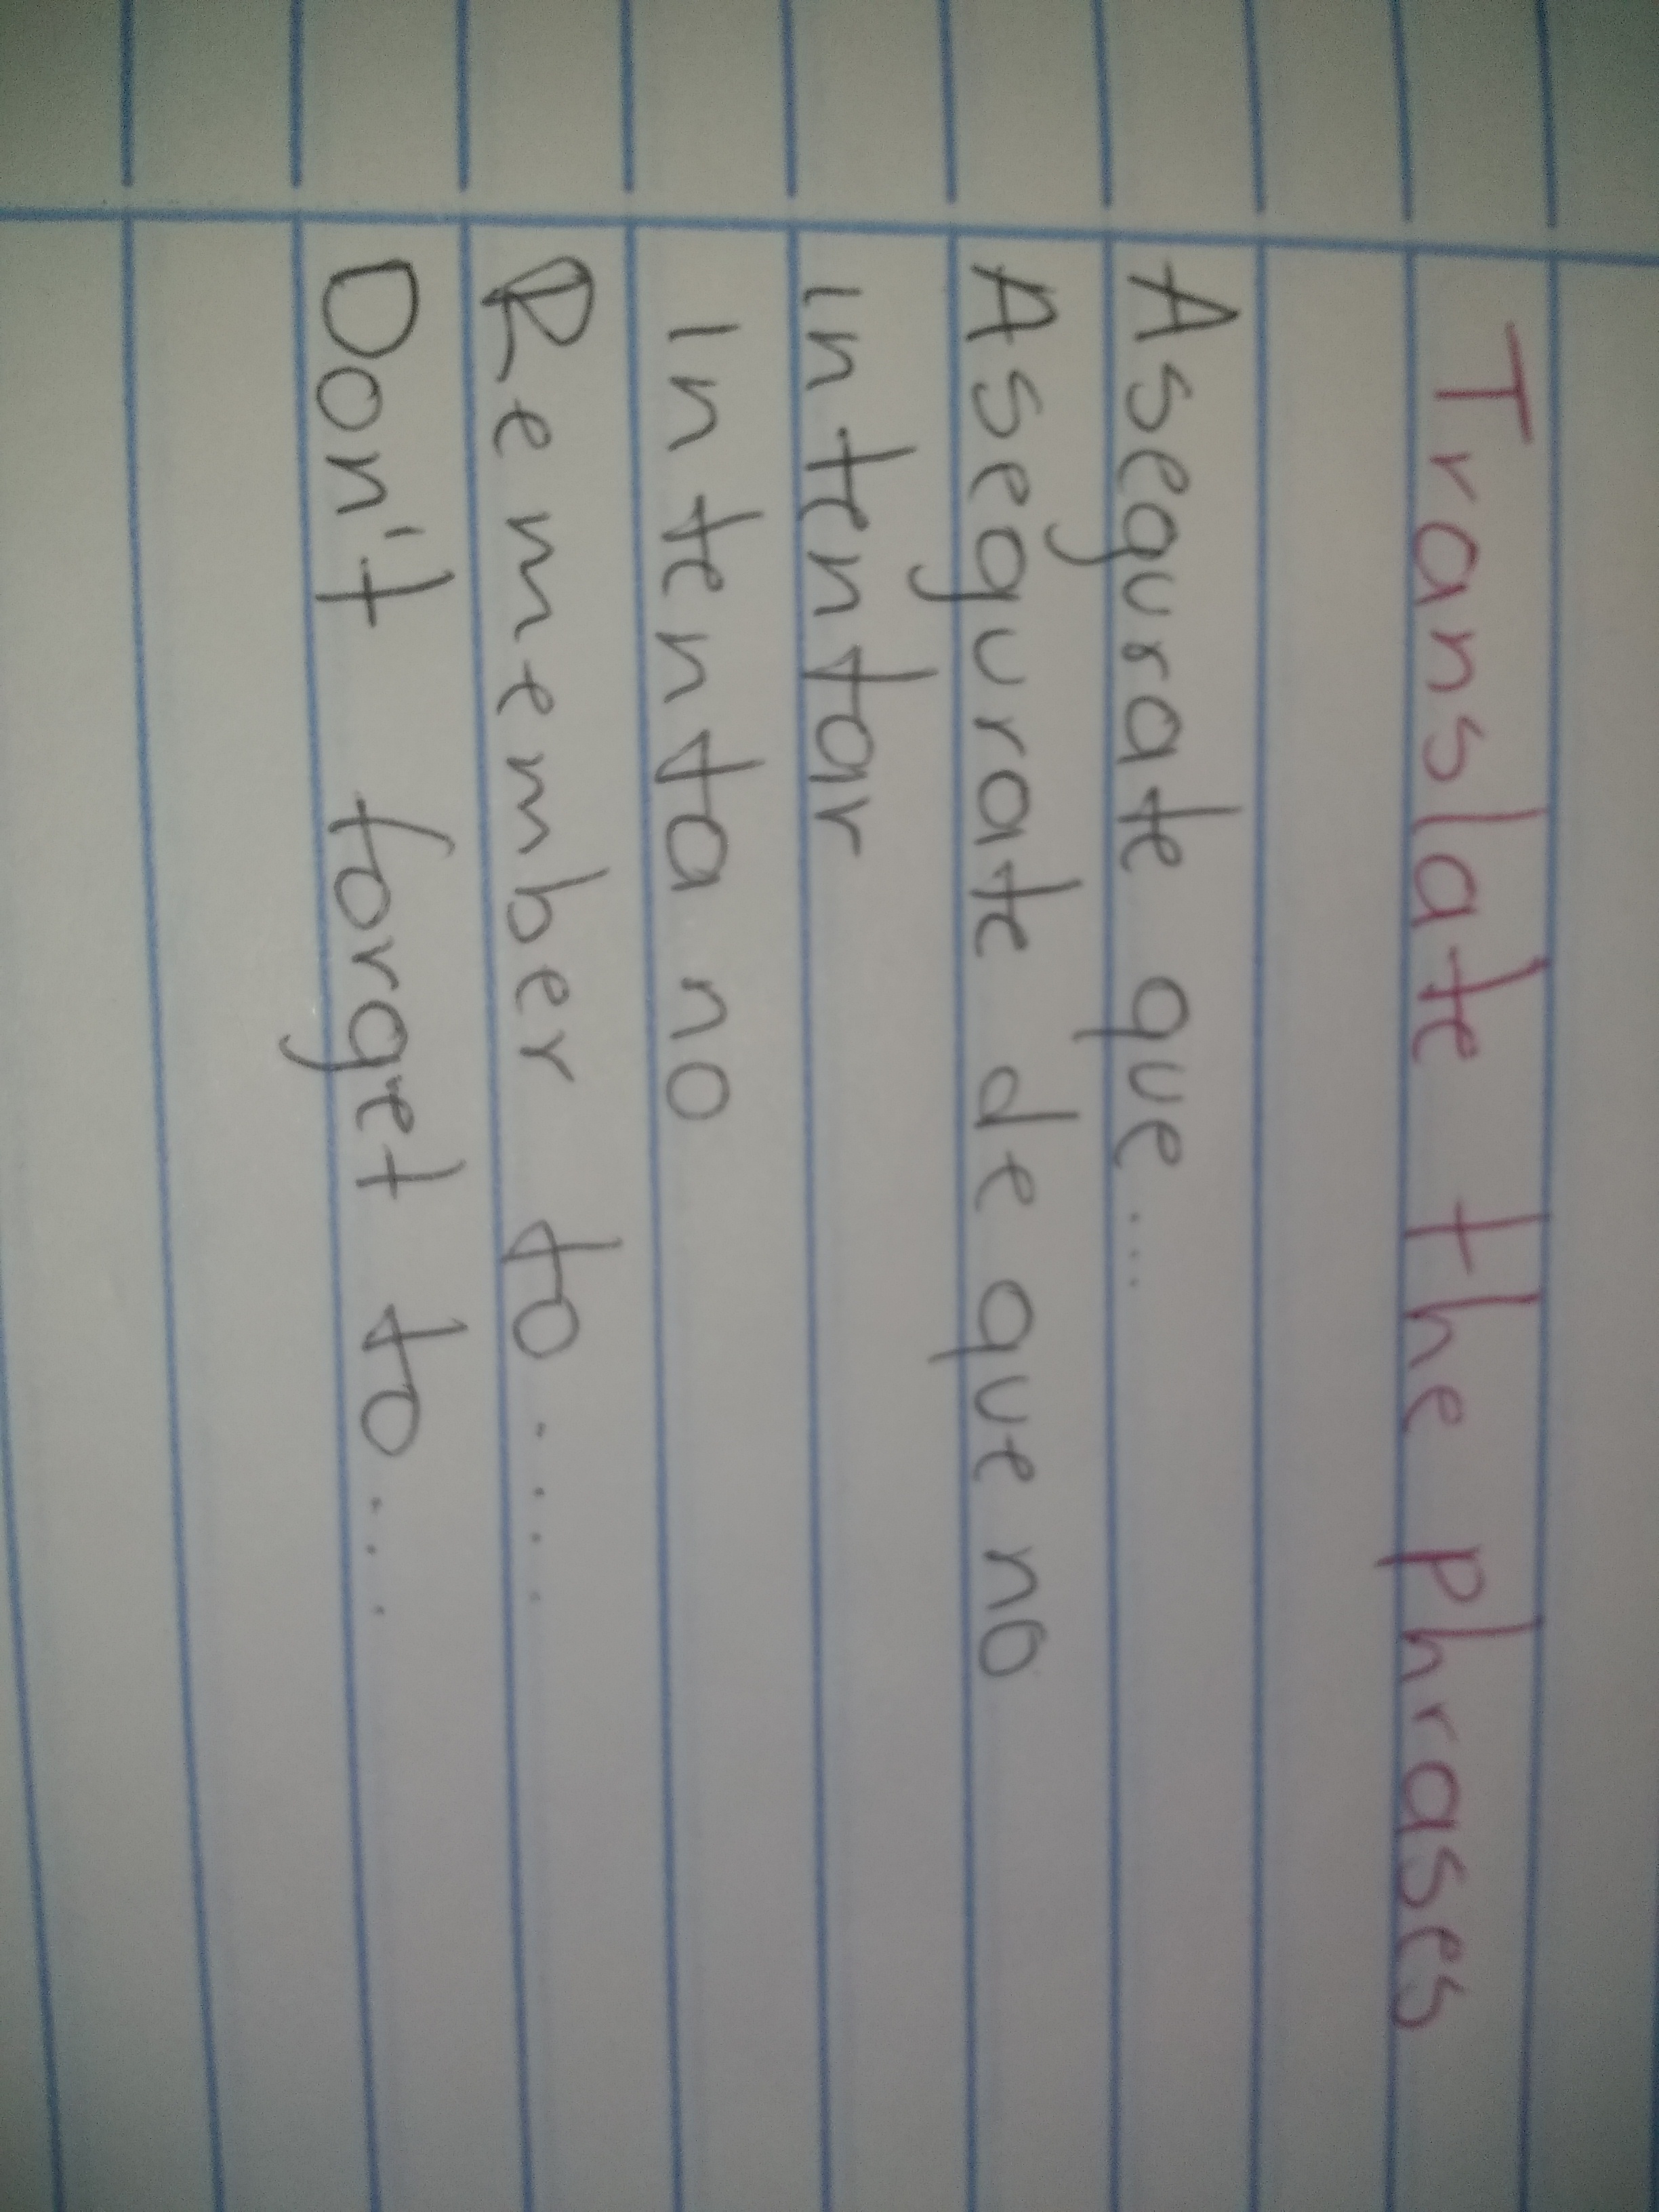 Translate the phrases
Asegurate que...
Asegurate de que no
intentar
Intenta no
Remember to....
Don't forget to....